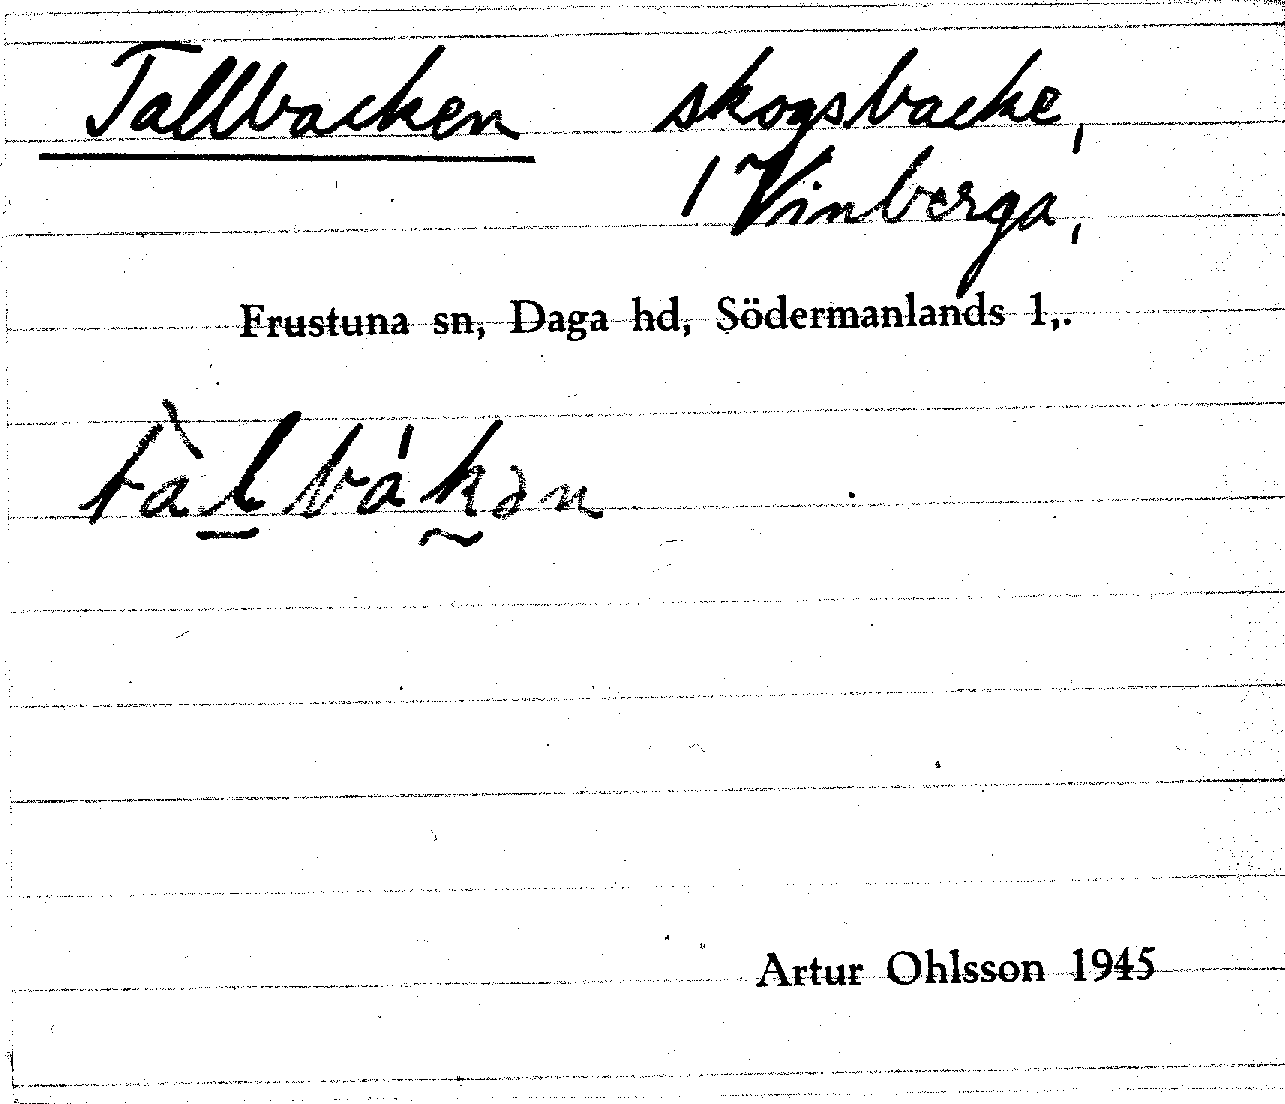 Tallbacken skogsbacke,
/ Vinberga,
Frustuna sn, Daga hd, Södermanlands l,.
tàl̲bák̰ən
Artur Ohlsson 1945